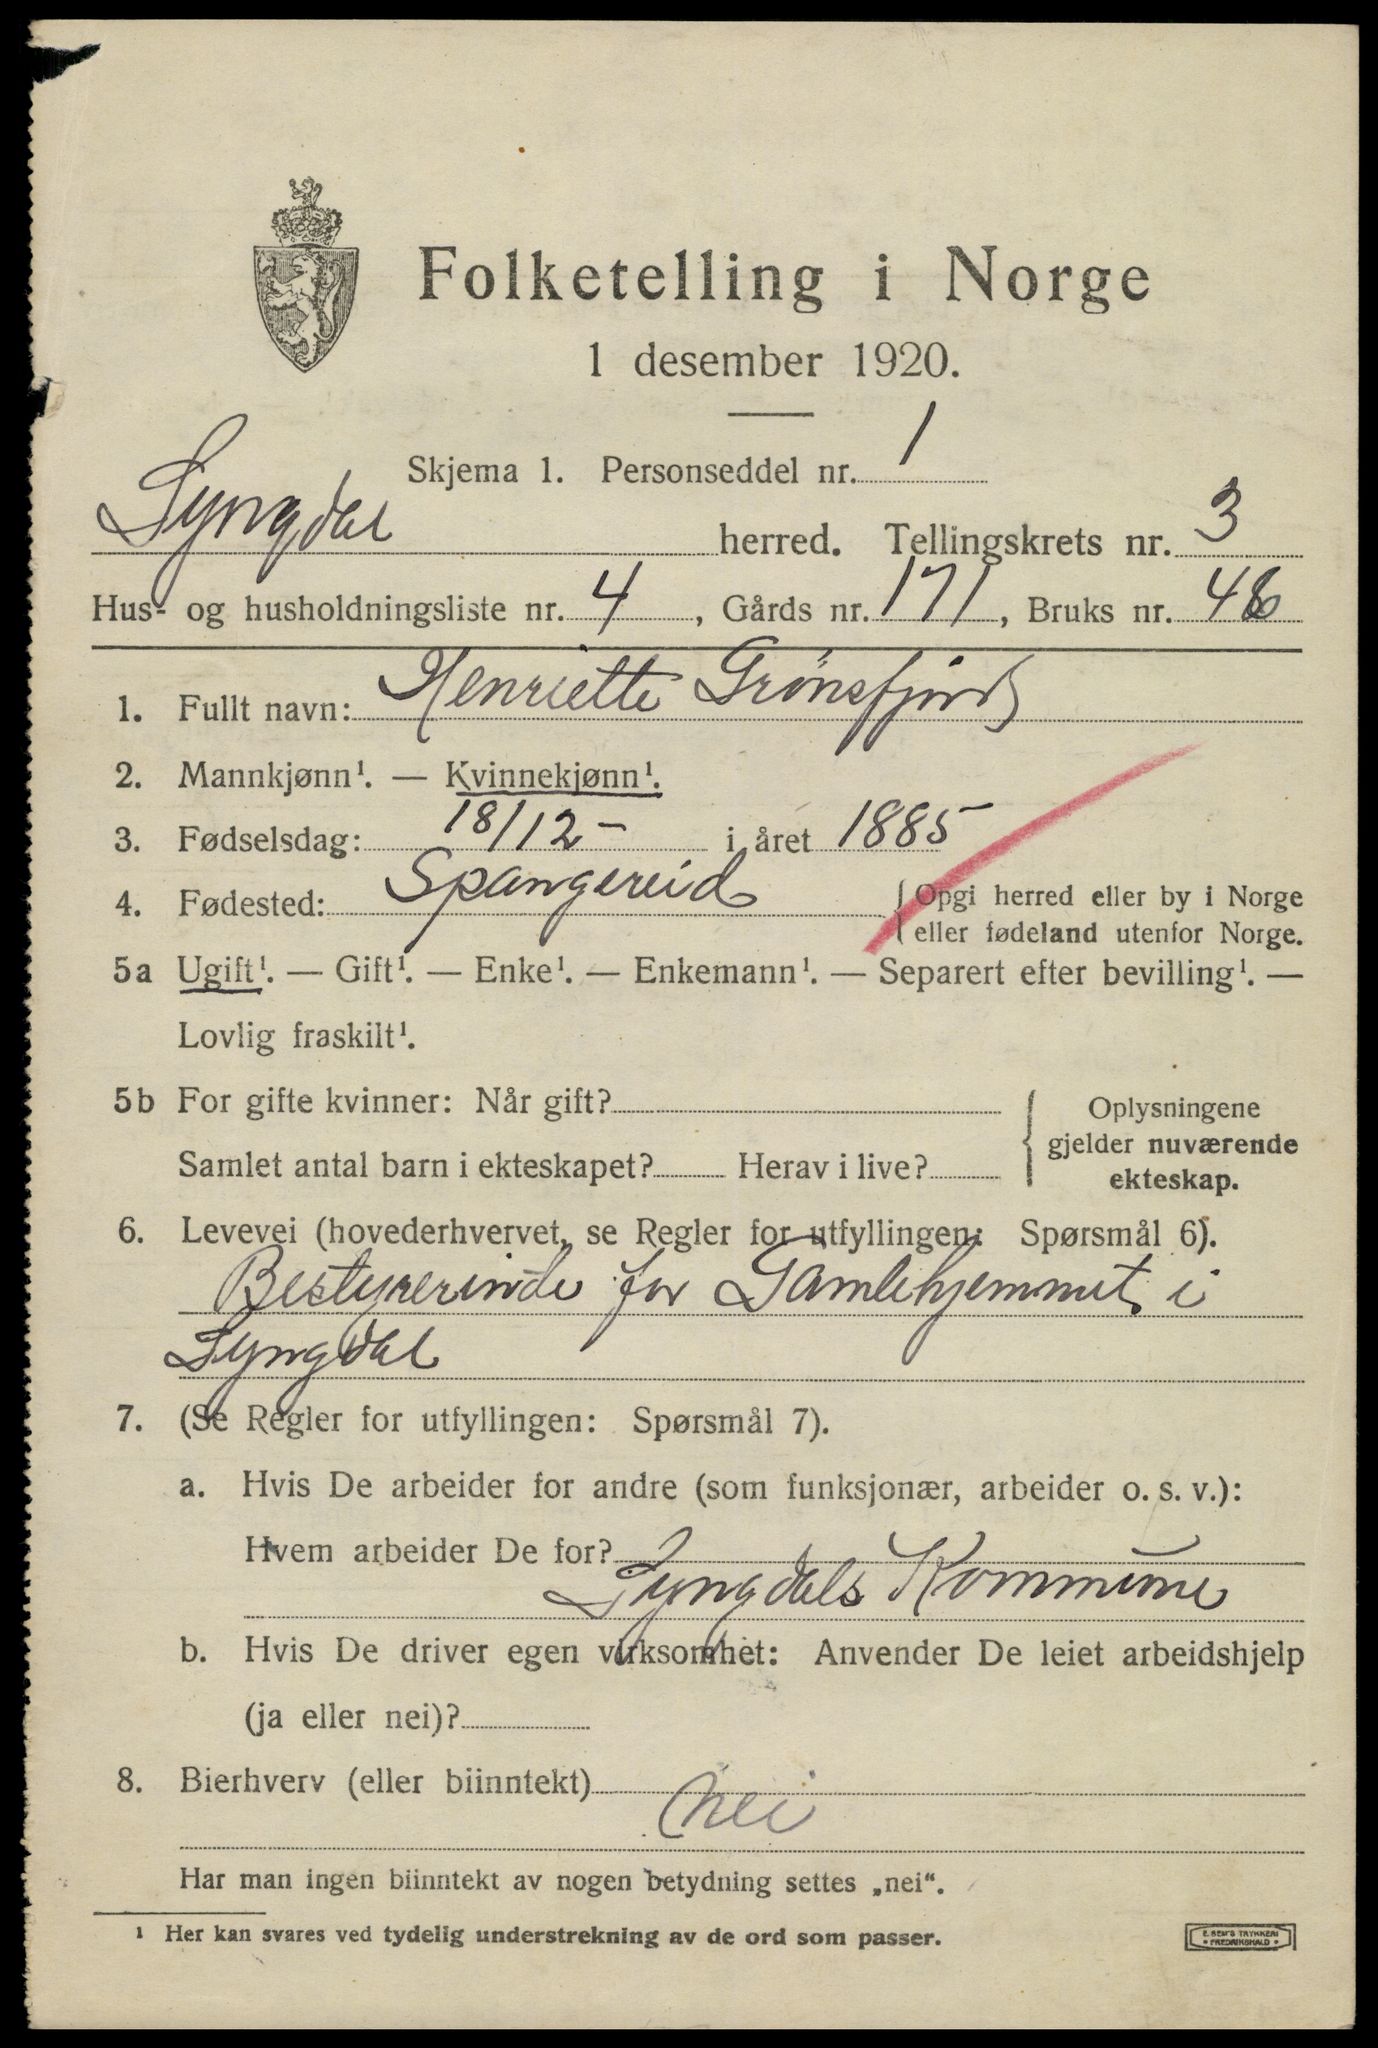 Folketelling i Norge
1 desember 1920.
Skjema 1. Personseddel nr. 1
Lyngdal herred. Tellingskrets nr. 3
Hus- og husholdningsliste nr. 4, Gårds nr. 171, Bruks nr.
1. Fullt navn: Henriette Grønsfjord
2. Mannkjønn¹. — Kvinnekjønn¹.
3. Fødselsdag: 18/12 - i året 1885
4. Fødested: Spangereid {Opgi herred eller by i Norge
eller fødeland utenfor Norge.
5a Ugift¹. — Gift¹. — Enke¹. — Enkemann¹. — Separert efter bevilling¹. —
Lovlig fraskilt¹.
5b For gifte kvinner: Når gift?
Samlet antal barn i ekteskapet? Herav i live?
{Oplysningene
gjelder nuværende
ekteskap.
6. Levevei (hovederhvervet, se Regler for utfyllingen: Spørsmål 6).
Bestyrerinde for Gamlehjemmet i
Lyngdal
7. (Se Regler for utfyllingen: Spørsmål 7).
a. Hvis De arbeider for andre (som funksjonær, arbeider o. s. v.):
Hvem arbeider De for?
Lyngdals Kommune
b. Hvis De driver egen virksomhet: Anvender De leiet arbeidshjelp
(ja eller nei)?
8. Bierhverv (eller biinntekt)
nei
Har man ingen biinntekt av nogen betydning settes „nei“.
¹ Her kan svares ved tydelig understrekning av de ord som passer.
E. SEM'S TRYKKERI
• FREDRIKSHALD •